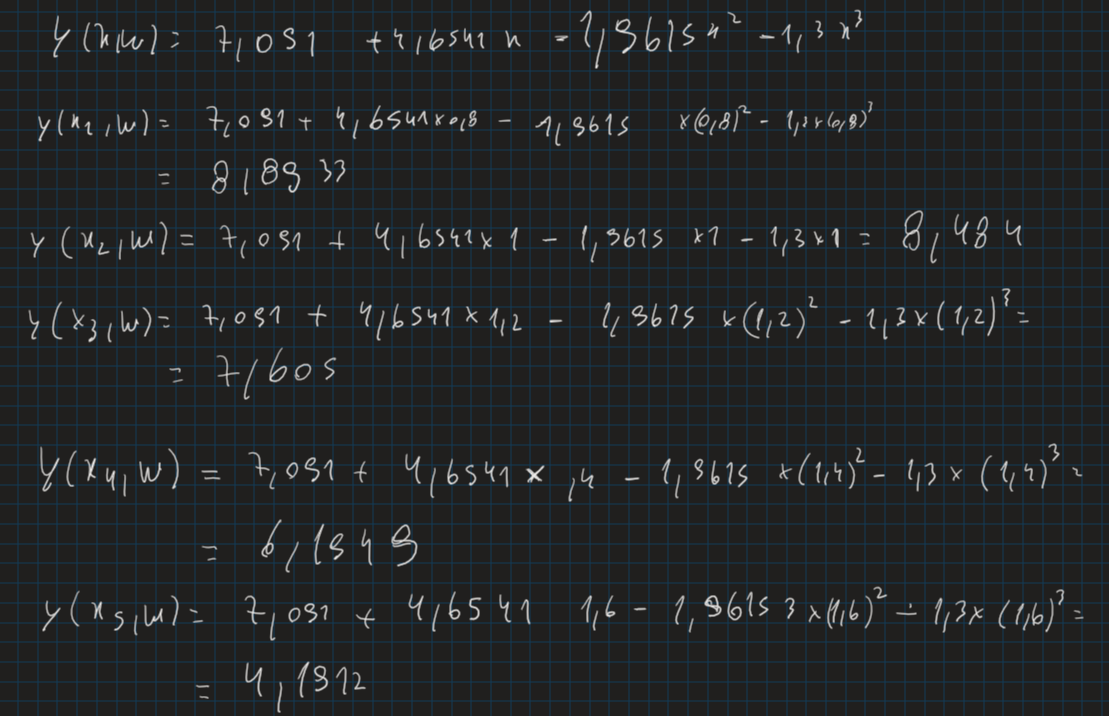 y(x,w) = 7,091 + 4,6541 x - 1,9615 x² - 1,3 x³
y(x₁,w) = 7,091 + 4,6541×0,8 - 1,9615 ×(0,8)² - 1,3×(0,8)³
= 8,8933
y(x₂,w) = 7,091 + 4,6541×1 - 1,9615 ×1 - 1,3×1 = 8,484
y(x₃,w) = 7,091 + 4,6541×1,2 - 1,9615 ×(1,2)² - 1,3×(1,2)³ =
= 7,605
y(x₄,w) = 7,091 + 4,6541 × ,4 - 1,9615 ×(1,4)² - 1,3× (1,4)³ =
= 6,1949
y(x₅,w) = 7,091 + 4,6541 1,6 - 1,96153×(1,6)² - 1,3× (1,6)³ =
= 4,1912